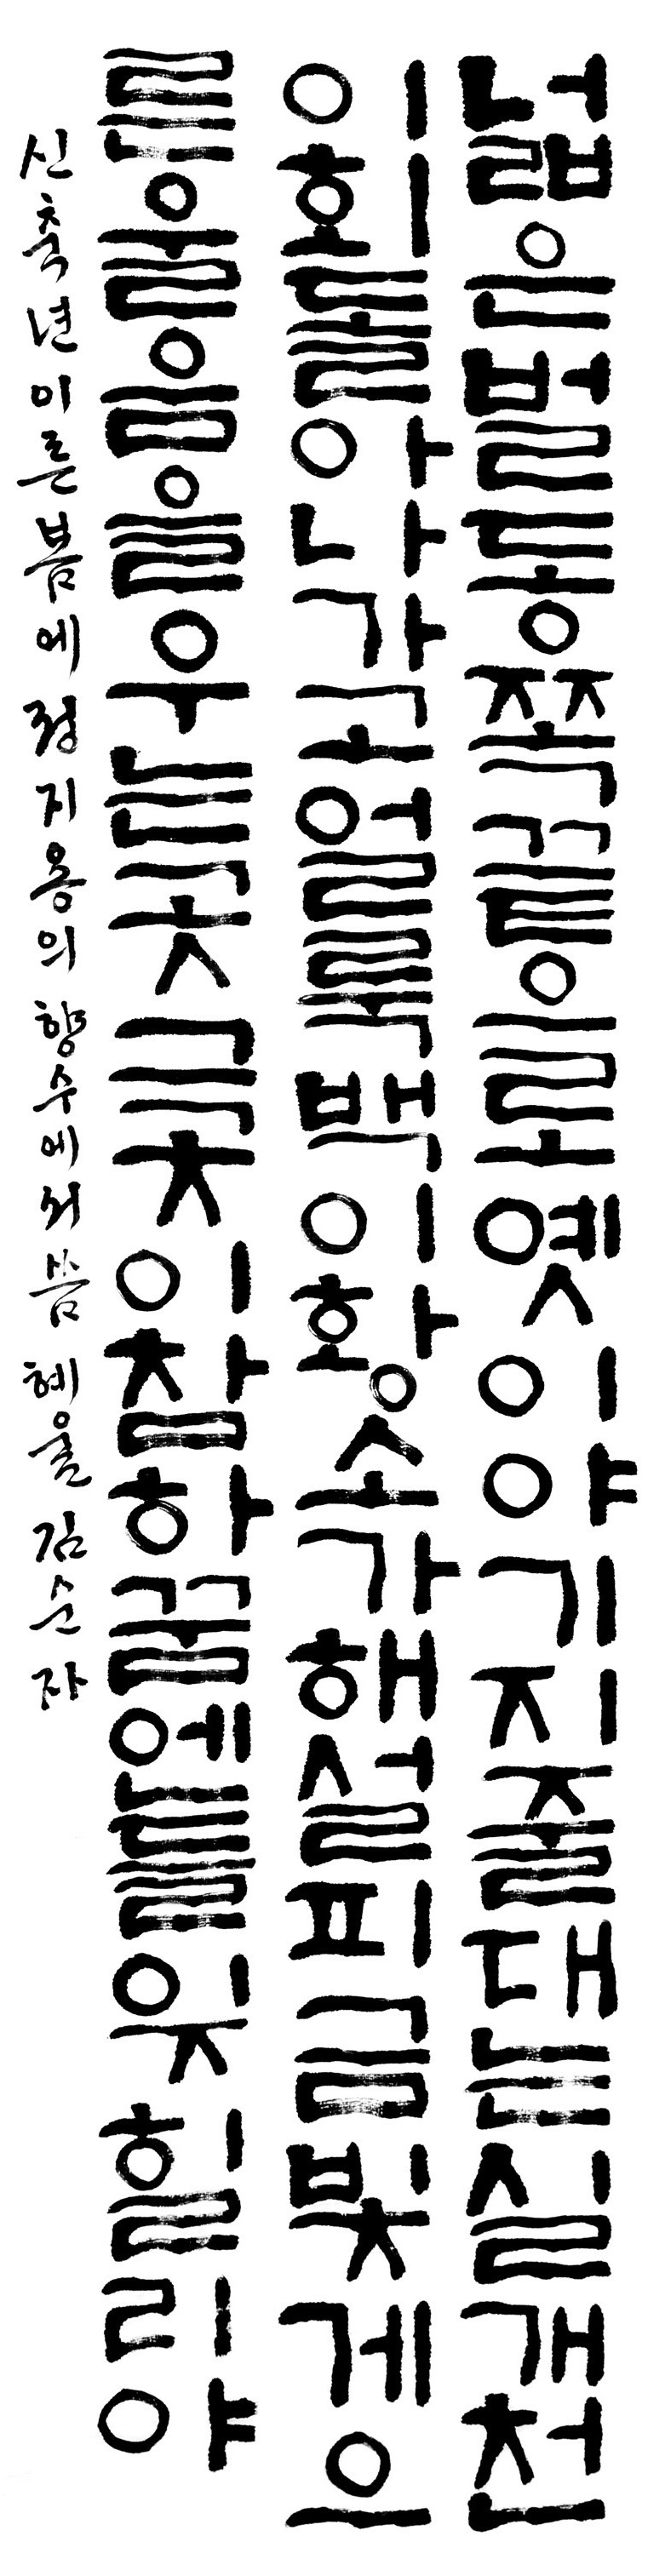 넓은벌동쪽끝으로옛이야기지줄대는실개천
이회돌아나가고얼룩백이황소가해설피금빛게으
른울음을우는곳그곳이참하꿈엔들잊힐리야
신축년이른봄에정지용의향수에서씀 김순자